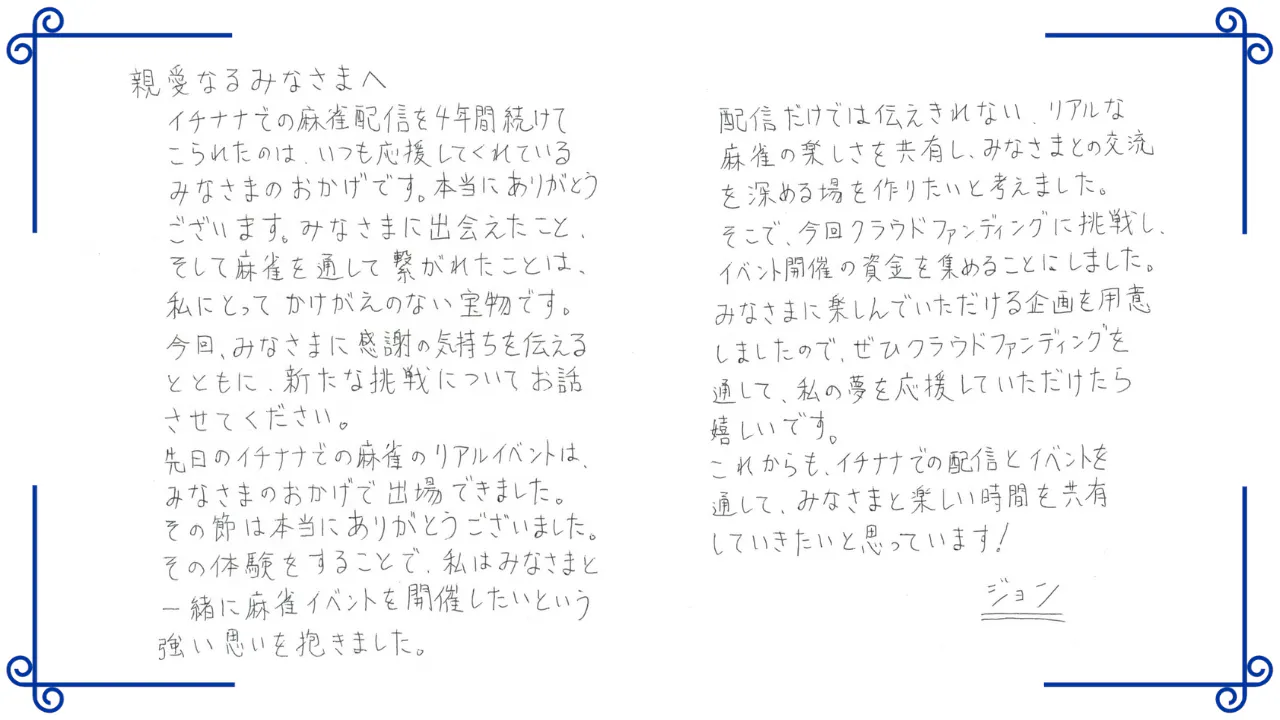 親愛なるみなさまへ
イチナナでの麻雀配信を4年間続けて
こられたのは、いつも応援してくれている
みなさまのおかげです。本当にありがとう
ございます。みなさまに出会えたこと、
そして麻雀を通して繋がれたことは、
私にとってかけがえのない宝物です。
今回、みなさまに感謝の気持ちを伝える
とともに、新たな挑戦についてお話
させてください。
先日のイチナナでの麻雀のリアルイベントは、
みなさまのおかげで出場できました。
その節は本当にありがとうございました。
その体験をすることで、私はみなさまと
一緒に麻雀イベントを開催したいという
強い思いを抱きました。
配信だけでは伝えきれない、リアルな
麻雀の楽しさを共有し、みなさまとの交流
を深める場を作りたいと考えました。
そこで、今回クラウドファンディングに挑戦し、
イベント開催の資金を集めることにしました。
みなさまに楽しんでいただける企画を用意
しましたので、ぜひクラウドファンディングを
通して、私の夢を応援していただけたら
嬉しいです。
これからも、イチナナでの配信とイベントを
通して、みなさまと楽しい時間を共有
していきたいと思っています!
ジョン